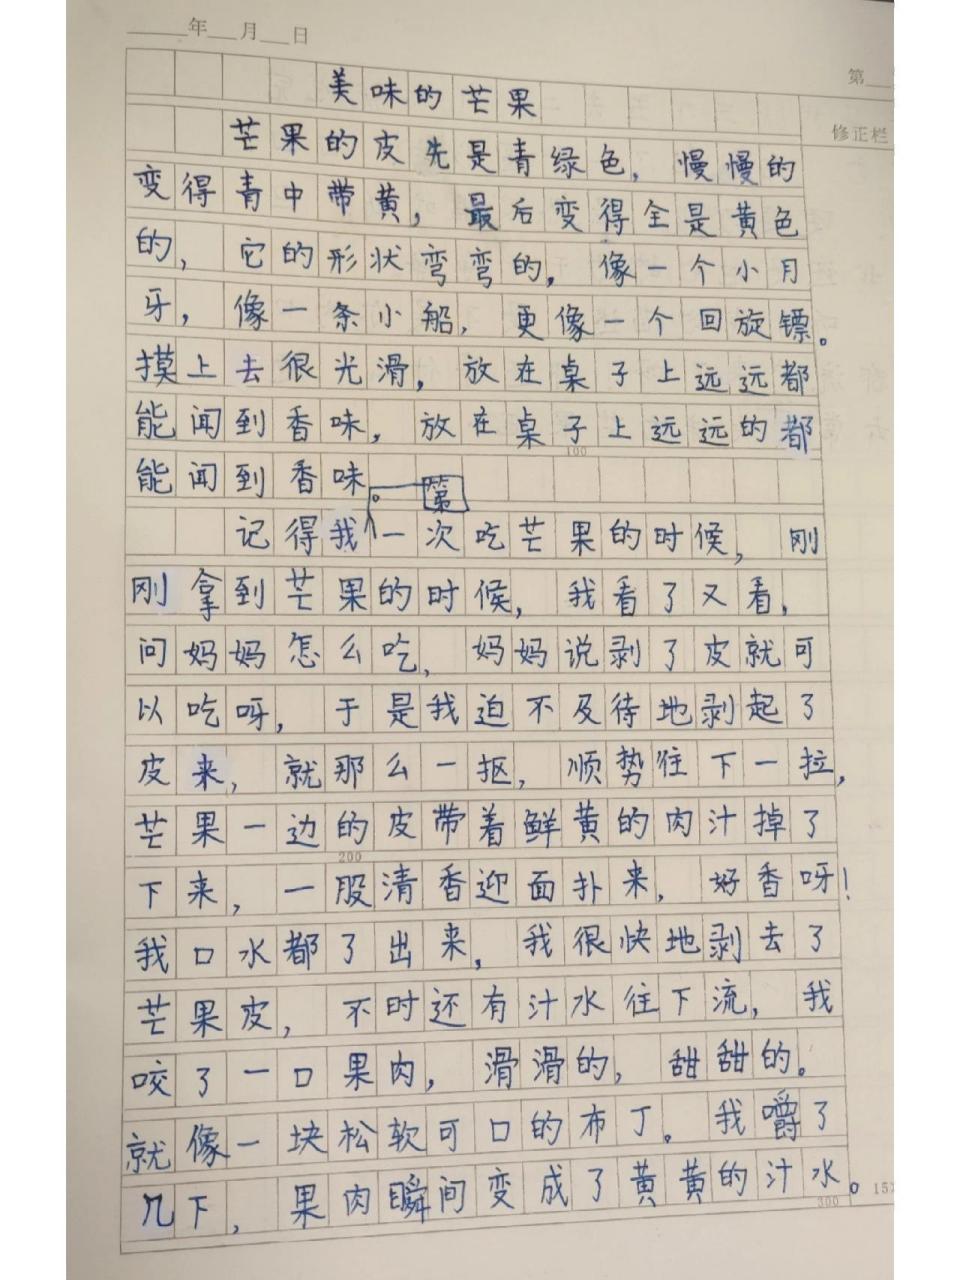 年 月 日
第
美味的芒果
修正栏
芒果的皮先是青绿色，慢慢的
变得青中带黄，最后变得全是黄色
的，它的形状弯弯的，像一个小月
牙，像一条小船，更像一个回旋镖。
摸上去很光滑，放在桌子上远远都
能闻到香味，放在桌子上远远的都
100
能闻到香味。
第
记得我一次吃芒果的时候，刚
刚拿到芒果的时候，我看了又看，
问妈妈怎么吃，妈妈说剥了皮就可
以吃呀，于是我迫不及待地剥起了
皮来，就那么一抠，顺势往下一拉，
芒果一边的皮带着鲜黄的肉汁掉了
200
下来，一股清香迎面扑来，好香呀！
我口水都了出来，我很快地剥去了
芒果皮，不时还有汁水往下流，我
咬了一口果肉，滑滑的，甜甜的。
就像一块松软可口的布丁。我嚼了
几下，果肉瞬间变成了黄黄的汁水。
300